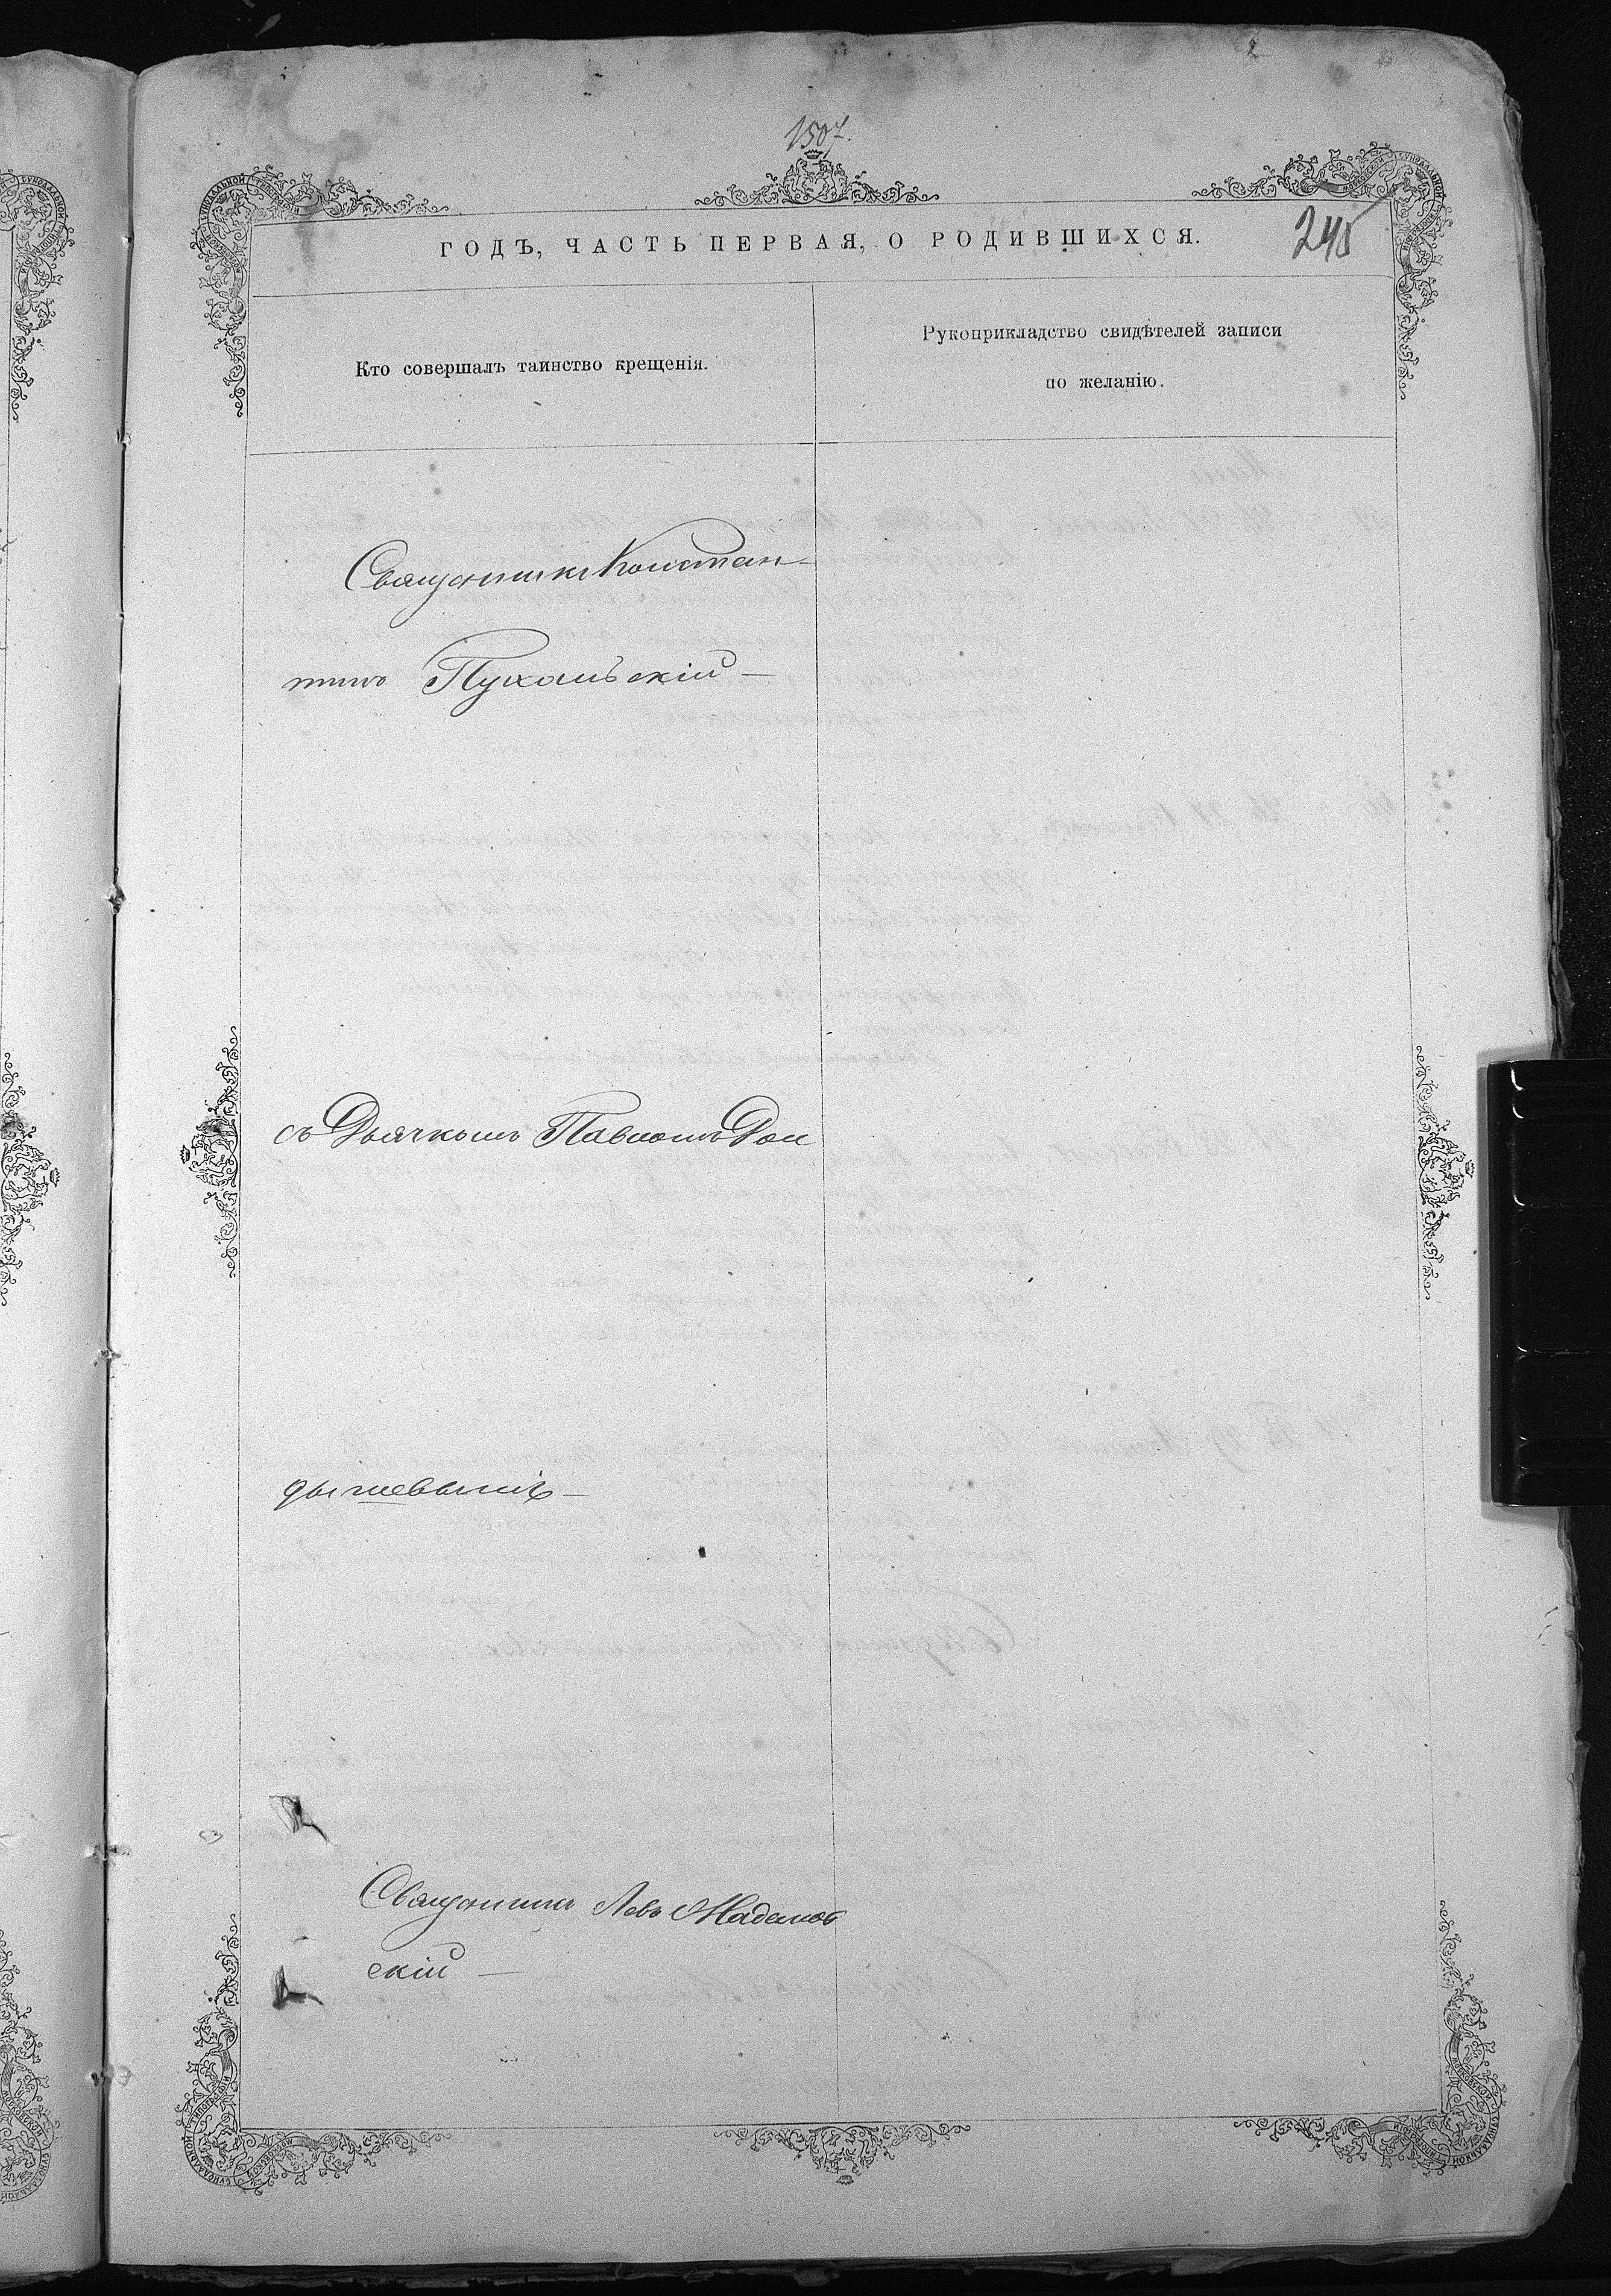 1507.
ГОДЪ, ЧАСТЬ ПЕРВАЯ, О РОДИВШИХСЯ.
240
Кто совершалъ таинство крещенія.
Рукоприкладство свидѣтелей записи
по желанію.
Священникъ Констан-
тинъ Пухальскій —
съ Дьячкомъ Павломъ Дон
дышевымъ —
Священникъ Левъ Мадемов
скій —